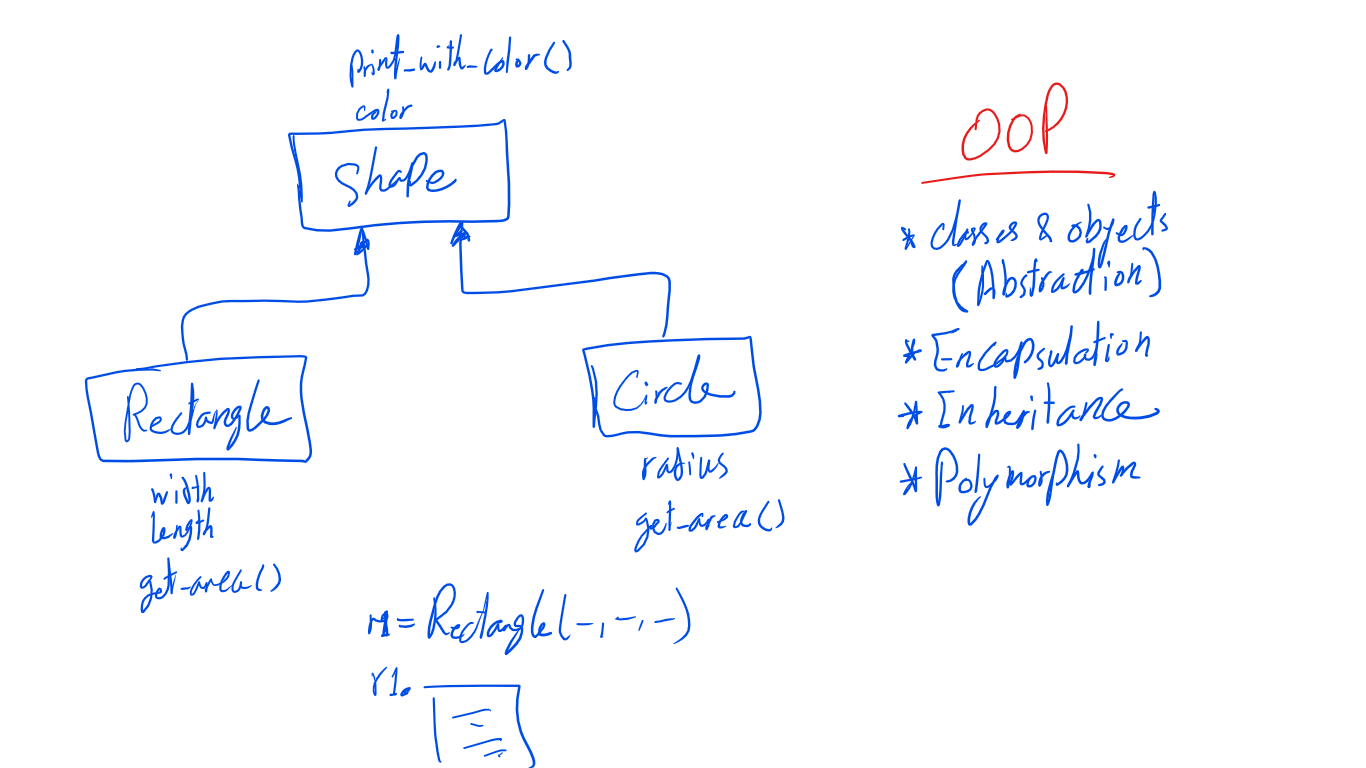 print_with_color()
color
Shape
Rectangle
width
length
get_area()
Circle
radius
get_area()
r1 = Rectangle(-, -, -)
r1.
OOP
* classes & objects
(Abstraction)
* Encapsulation
* Inheritance
* Polymorphism